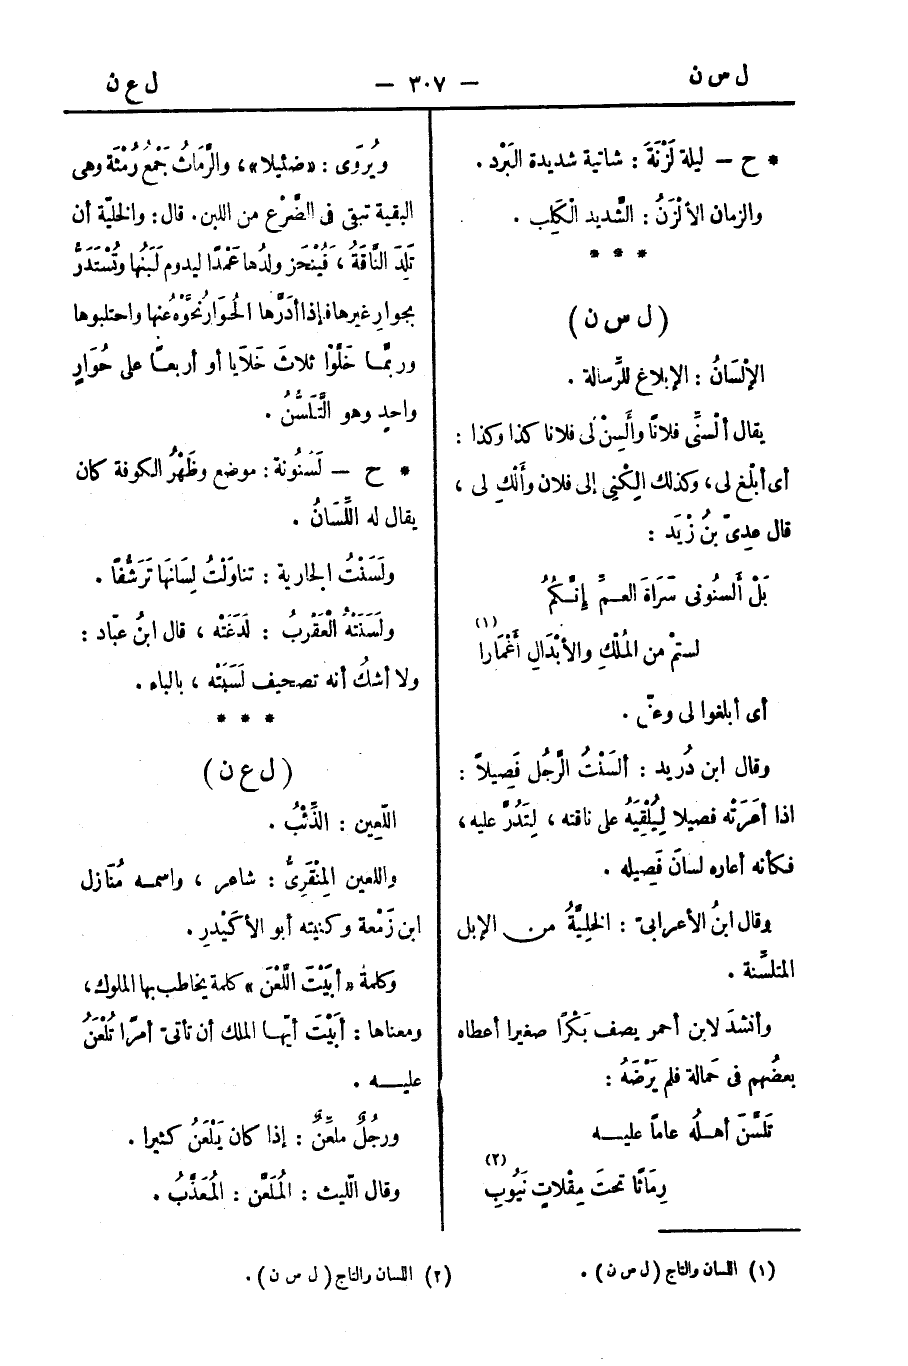 ل س ن
— ٣٠٧ —
ل ع ن
* ح — ليلة لَزْنَةَ : شاتية شديدة البَرْد .
والزمان الألْزَنُ : الشَّديد الْكَلِب .
* * *
( ل س ن )
الإلْسَانُ : الإبلاغ للرِّسالة .
يقال ألْسنِّى فلانًا وأَلسِنْ لى فلانا كذا وكذا :
أى أبلْغ لى ، وكذلك الِكْنِى إلى فلان وأَلكْ لى ،
قال عدِىّ بنُ زْيَد :
بَلْ أَلسنُونى سَرَاةَ العـمِّ إنَّـكُمُ
لستمْ من المُلْكِ والأبْدَالِ أَغْمَارا (١)
أى أبلغوا لى وعنّى .
وقال ابن دُريد : ألسَنْتُ الرَّجُل فَصِيلاً :
اذا أعَرَتْه فصيلا لِيُلْقِيَهُ على ناقته ، لِتَدُرَّ عليه ،
فـكأنه أعاره لسانَ فَصِيله .
وقال ابنُ الأعرابىّ : الخلِيَّةُ من الإبل
المتلسِّنة .
وأنشدَ لابن أحمر يصف بَكْرًا صغيرا أعطاه
بعضُهم فى حَمالة فلم يَرْضَهُ :
تَلَسَّنَ أهـلُه عاماً عليـــه
رِمَاثًا تحتَ مِقْلاتٍ نَيُوبِ (٢)
(١) اللسان والتاج ( ل س ن ) .
ويُروَى : «ضئيلا» ، والرِّمَاثُ جَمْعُ رُمْثَة وهى
البقية تبقى فى الضَّرْع من اللبن . قال : والخليّة أن
تَلِدَ النَّاقةُ ، فَيُنْحَر ولدُها عَمْدًا ليدوم لَبَنُها وتُسْتَدَرُّ
بحِوارِ غيرها فإذا أدَرَّها الحُوَارُ نحَّوْه عنها واحتلبوها
وربمَّـا خَلَّوْا ثلاثَ خَلَايا أو أربعـًا على حُوَارٍ
واحدٍ وهو التَّلَسُّنُ .
* ح — لَسْنُونة : موضع وظَهْرُ الكوفة كان
يقال له اللِّسَانُ .
ولَسَنْتُ الجارية : تناوَلْتُ لِسَانَهَا تَرَشُّفًا .
ولَسَنَتْهُ الْعَقْربُ : لَدَغَتْه ، قال ابنُ عبّاد :
ولا أشكُ أنه تصحيف لَسَبَتْه ، بالباء .
* * *
( ل ع ن )
اللّعِين : الذِّئْبُ .
واللعين المِنْقَرِىُّ : شاعر ، واسمـه مُنَازل
ابن زَمْعة وكنيته أبو الأكَيْدِرِ .
وكلمةُ « أبَيْتَ اللَّعْنَ » كلمة يخاطب بها الملوك ،
ومعناها : أبَيْتَ أيّهـا الملك أن تأتىَ أمرًا تُلْعَنُ
عليـــه .
ورجُلٌ ملعِّنٌ : إذا كان يَلْعَنُ كثيرا .
وقال اللّيث : المُلَعَّن : المُعَذَّبُ .
(٢) اللسان والتاج ( ل س ن ) .